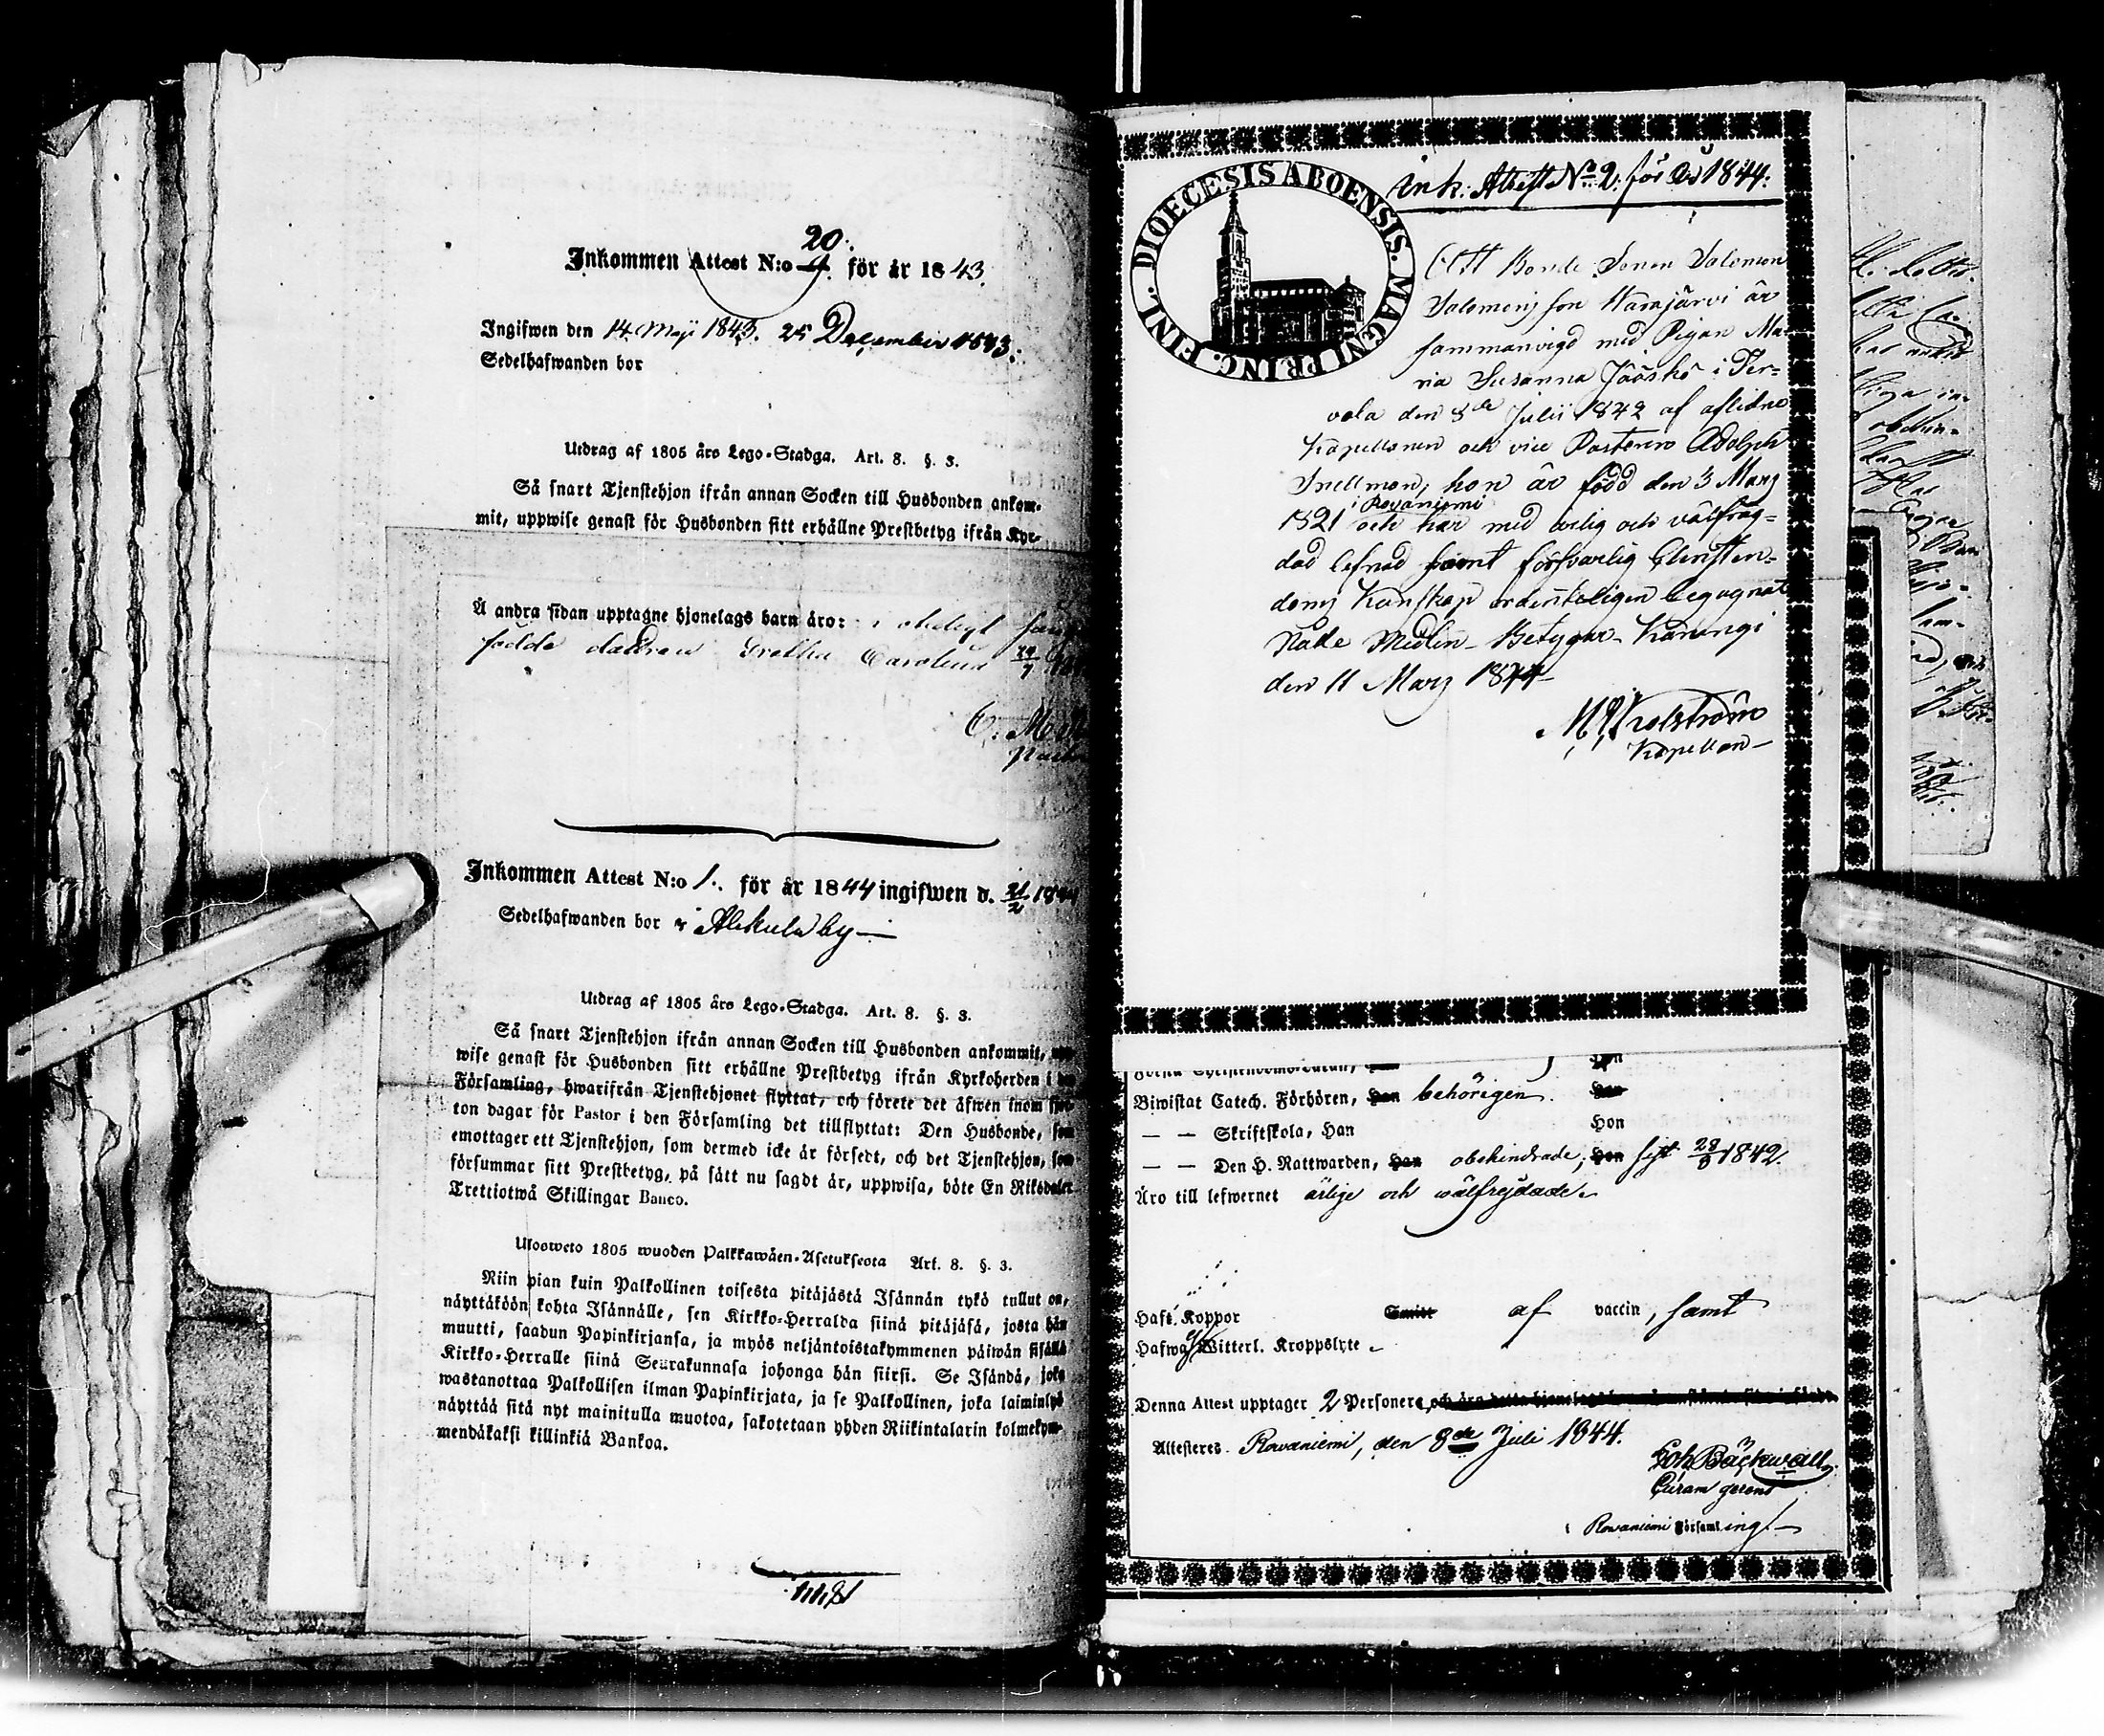 Inkommen Attest N:o 20. för år 1843.
Ingifwen den 14. Maji 1843. 25 December 1843.
Sedelhafwanden bor
Utdrag af 1805 års Lego-Stadga. Art. 8. §. 3.
Så snart Tjenstehjon ifrån annan Socken till Husbonden ankom-
mit, uppwise genast för Husbonden sitt erhållne Prestbetyg ifrån Kyr-
Å andra sidan upptagne hjonelags barn äro:
födde Gretha Carolina
Inkommen Attest N:o 1. för år 1844 ingifwen d. 21/2
Sedelhafwanden bor i Alkula by
Utdrag af 1805 års Lego-Stadga. Art. 8. §. 3.
Så snart Tjenstehjon ifrån annan Socken till Husbonden ankommit,
wise genast för Husbonden sitt erhållne Prestbetyg ifrån Kyrkoherden i
Församling, hwarifrån Tjenstehjonet flyttat, och förete det äfwen inom
ton dagar för Pastor i den Församling det tillflyttat: Den Husbonde, som
emottager ett Tjenstehjon, som dermed icke är försedt, och det Tjenstehjon, som
försummar sitt Prestbetyg, på sätt nu sagdt är, uppwisa, böte En Riksdaler
Trettiotwå Skillingar Banco.
Ulosweto 1805 wuoden Palkkawäen-Asetuksesta Art. 8. §. 3.
Niin pian kuin Palkollinen toisesta pitäjästä Isännän tykö tullut on,
näyttäköön kohta Isännälle, sen Kirkko-Herralda siinä pitäjäsä, josta hän
muutti, saadun Papinkirjansa, ja myös neljäntoistakymmenen päiwän sisällä
Kirkko-Herralle siinä Seurakunnasa johonga hän siirsi. Se Isändä, joka
wastanottaa Palkollisen ilman Papinkirjata, ja se Palkollinen, joka laiminlyö
näyttää sitä nyt mainitulla muotoa, sakotetaan yhden Riikintalarin kolmekym-
mendäkaksi killinkiä Bankoa.
DIOECESIS ABOENSIS. MAGNI PRINC. FINL.
Ink: Attest No 2. för År 1844.
Att Bonde Sonen Salomon
Salomons son Karajärvi är
sammanvigd med Pigan Ma-
ria Susanna Jääskö i Ter-
vola den 8de Julii 1842 af aflidne
Kapellanen och vice Pastoren Adolph
Snellman; hon är född den 3 Mars
1821 i Rovaniemi och har med ärlig och välfräg-
dad lefnad samt försvarlig Christen-
doms Kunskap ordenteligen begagnat
Nåde Medlen Betygar Karungi
den 11 Mars 1844
Kapellan
Biwistat Catech. Förhören, Han behörigen. Hon
— — Skriftskola, Han Hon
— — Den H. Nattwarden, Han obehindrade; Hon sist 1842.
Äro till lefwernet ärlige och wälfrejdade.
Haft. Koppor Smitt af vaccin, samt
Hafwa ej Witterl. Kroppslyte
Denna Attest upptager 2 Personer,
Attesteres Rowaniemi, den 8de Juli 1844.
Joh Bäckwall
Curam gerens
i Rowaniemi Församling